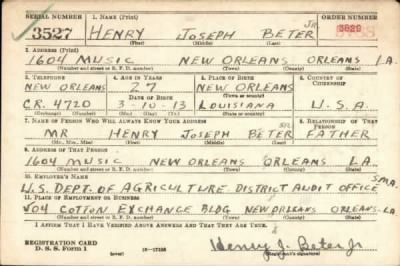 SERIAL NUMBER 1. NAME (Print) ORDER NUMBER
3527 HENRY JOSEPH BETER JR.
(First) (Middle) (Last)
2. ADDRESS (Print)
1604 MUSIC NEW ORLEANS ORLEANS LA.
(Number and street or R. F. D. number) (Town) (County) (State)
3. TELEPHONE 4. AGE IN YEARS 5. PLACE OF BIRTH 6. COUNTRY OF CITIZENSHIP
NEW ORLEANS 27 NEW ORLEANS
(Town or county)
CR. 4720 3-10-13 LOUISIANA U.S.A.
(Exchange) (Number) (Mo.) (Day) (Yr.) (State or country)
7. NAME OF PERSON WHO WILL ALWAYS KNOW YOUR ADDRESS 8. RELATIONSHIP OF THAT PERSON
MR HENRY JOSEPH BETER SR. FATHER
(Mr., Mrs., Miss) (First) (Middle) (Last)
9. ADDRESS OF THAT PERSON
1604 MUSIC NEW ORLEANS ORLEANS LA.
(Number and street or R. F. D. number) (Town) (County) (State)
10. EMPLOYER'S NAME
U.S. DEPT. OF AGRICULTURE DISTRICT AUDIT OFFICE S.M.A.
11. PLACE OF EMPLOYMENT OR BUSINESS
COTTON EXCHANGE BLDG NEW ORLEANS ORLEANS LA
(Number and street or R. F. D. number) (Town) (County) (State)
I AFFIRM THAT I HAVE VERIFIED ABOVE ANSWERS AND THAT THEY ARE TRUE.
REGISTRATION CARD
D. S. S. Form 1 (over) 16-17105 Henry J. Beter Jr
(Registrant's signature)